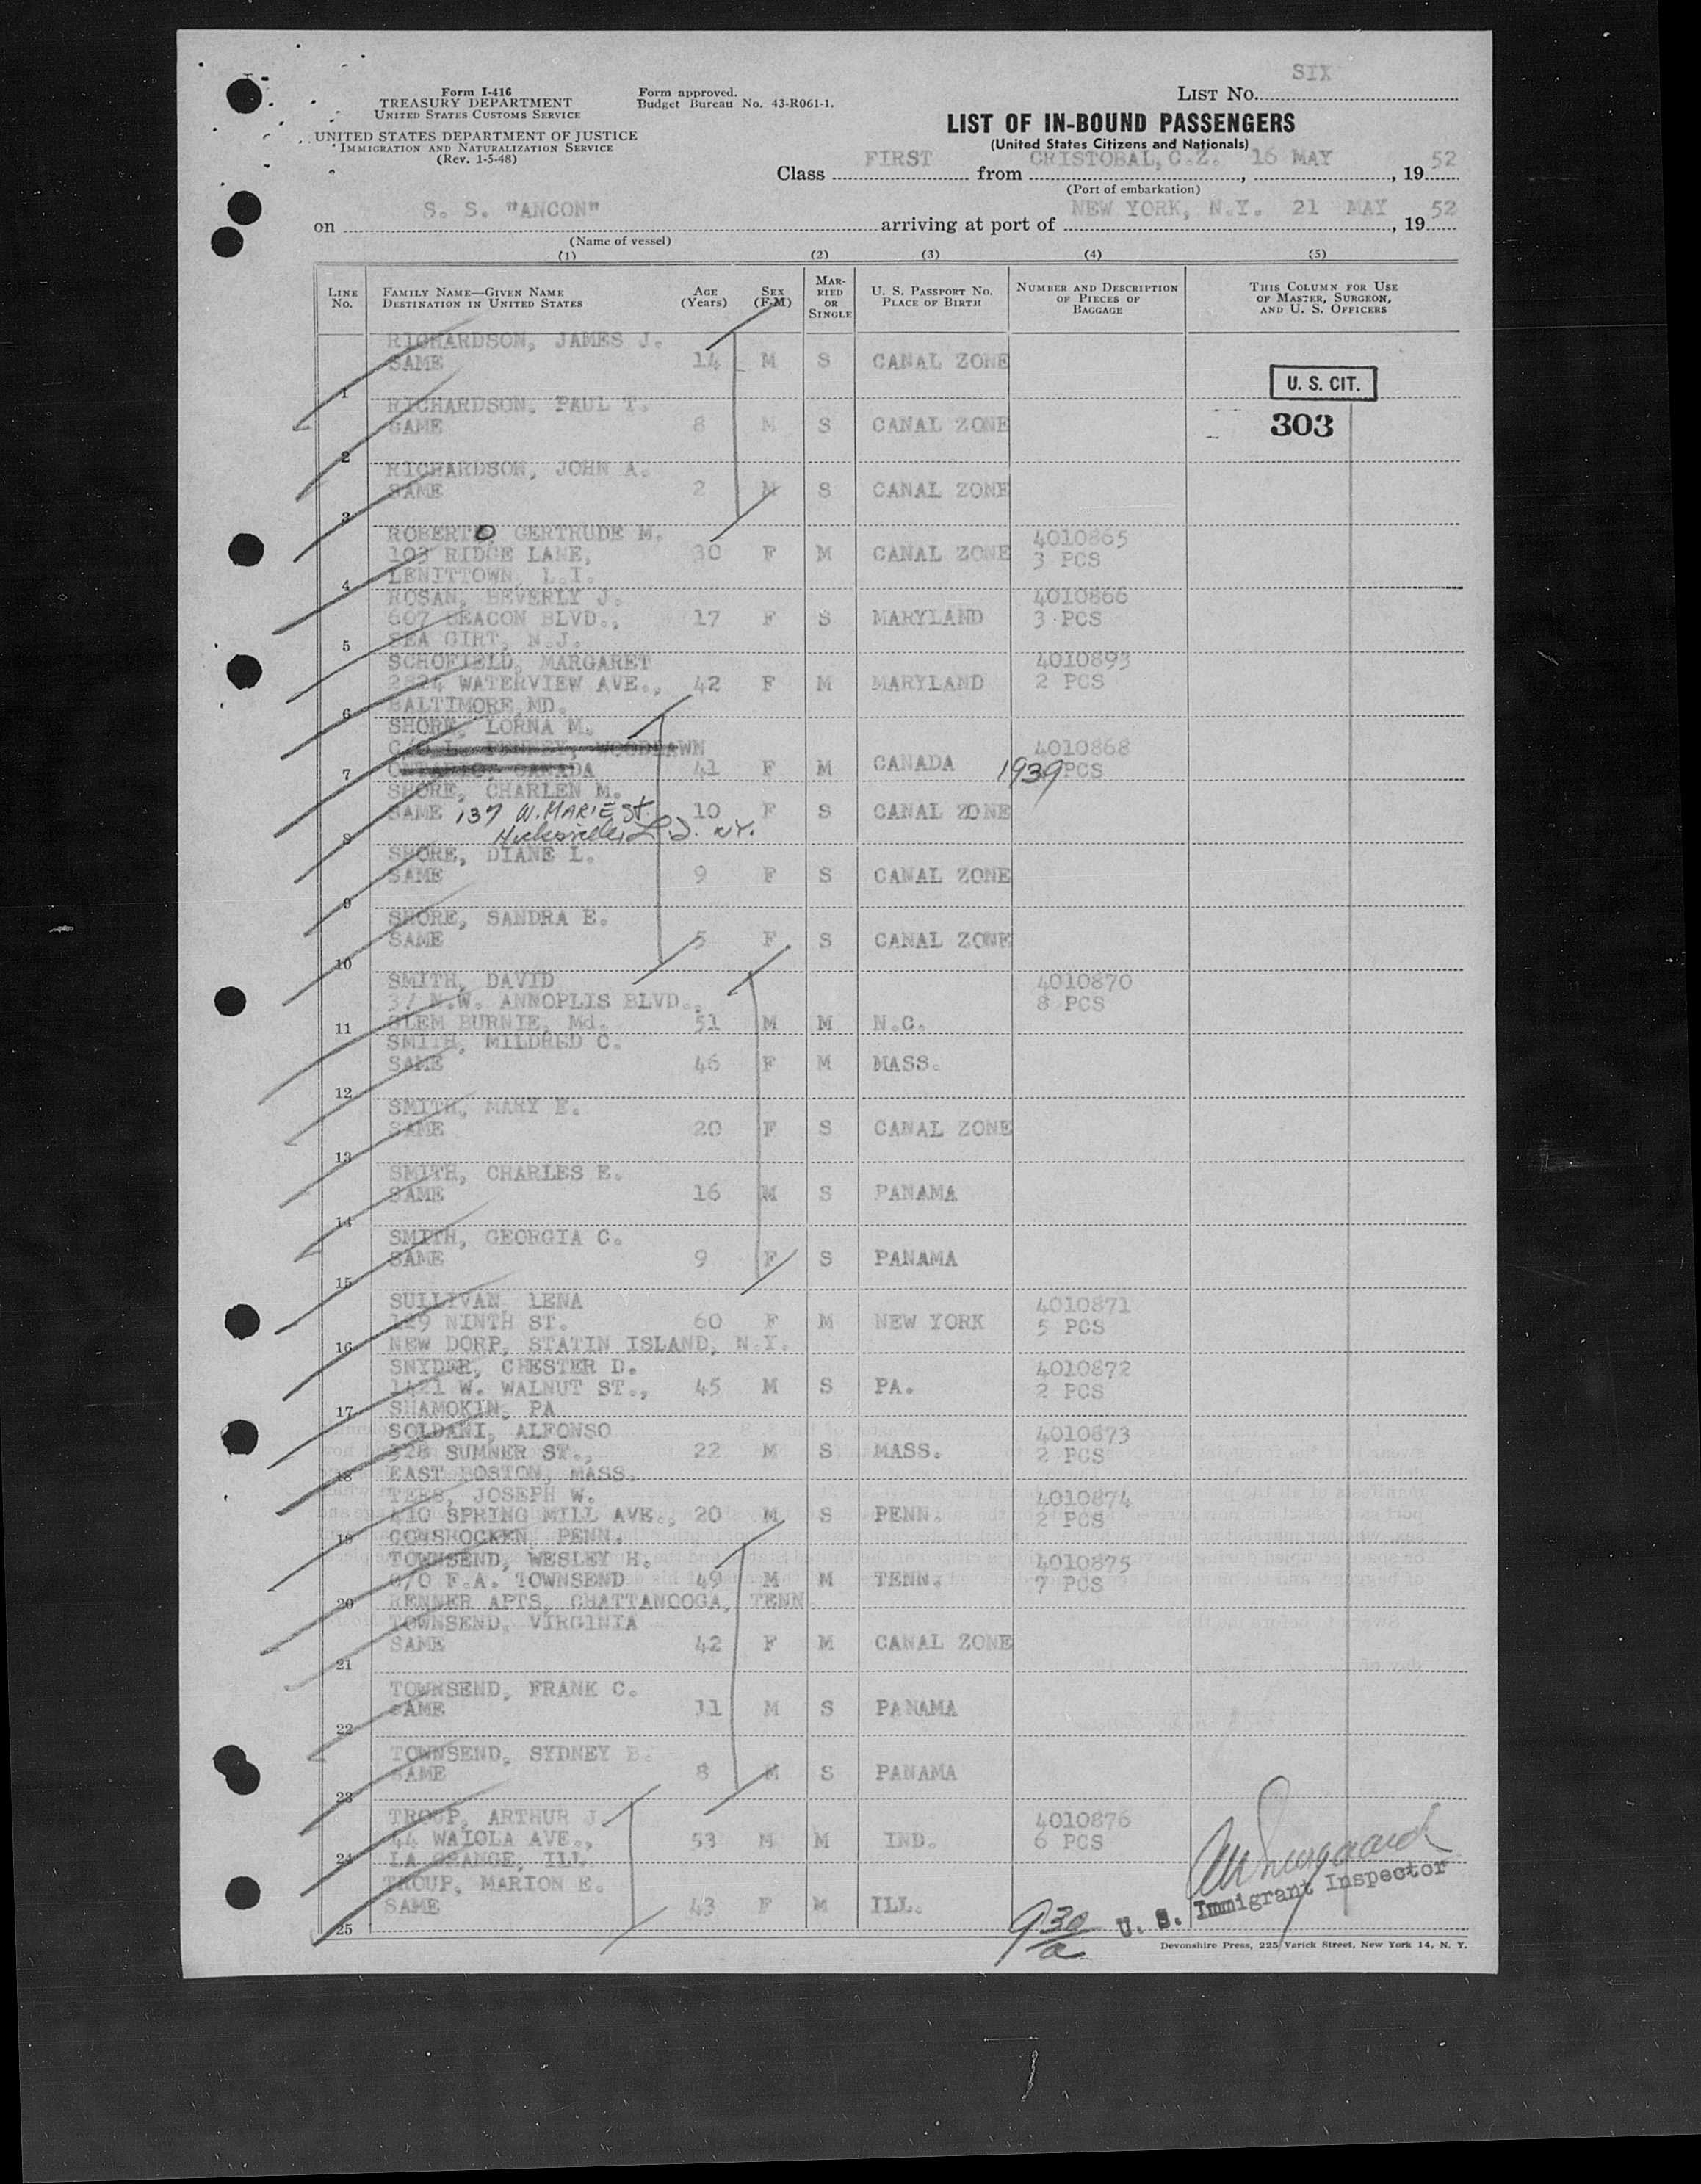 SIX
Form I-416
TREASURY DEPARTMENT
UNITED STATES CUSTOMS SERVICE
UNITED STATES DEPARTMENT OF JUSTICE
IMMIGRATION AND NATURALIZATION SERVICE
(Rev. 1-5-48)
Form approved.
Budget Bureau No. 43-R061-1.
LIST NO.
LIST OF IN-BOUND PASSENGERS
(United States Citizens and Nationals)
Class FIRST from CRISTOBAL, C.Z. 16 MAY , 19 52
(Port of embarkation)
on S. S. "ANCON" arriving at port of NEW YORK, N.Y. 21 MAY , 19 52
(Name of vessel)
(1) (2) (3) (4) (5)
LINE NO. FAMILY NAME—GIVEN NAME DESTINATION IN UNITED STATES AGE (Years) SEX (F-M) MARRIED OR SINGLE U. S. PASSPORT NO. PLACE OF BIRTH NUMBER AND DESCRIPTION OF PIECES OF BAGGAGE THIS COLUMN FOR USE OF MASTER, SURGEON, AND U. S. OFFICERS
RICHARDSON, JAMES J.
SAME 14 M S CANAL ZONE
1
U. S. CIT.
303
RICHARDSON, PAUL T.
SAME 8 M S CANAL ZONE
2
RICHARDSON, JOHN A.
SAME 2 M S CANAL ZONE
3
ROBERTO, GERTRUDE M. 4010865
103 RIDGE LANE, 30 F M CANAL ZONE 3 PCS
4 LENITTOWN, L.I.
ROSAN, BEVERLY J. 4010866
607 BEACON BLVD., 17 F S MARYLAND 3 PCS
5 SEA GIRT, N.J.
SCHOFIELD, MARGARET 4010893
2824 WATERVIEW AVE., 42 F M MARYLAND 2 PCS
6 BALTIMORE, MD.
SHORE, LORNA M. 4010868
7 ONTARIO, CANADA 41 F M CANADA 1939 PCS
SHORE, CHARLEN M.
SAME 137 W. MARIE St. 10 F S CANAL ZONE
8 Hicksville, L.I. N.Y.
SHORE, DIANE L.
SAME 9 F S CANAL ZONE
9
SHORE, SANDRA E.
SAME 5 F S CANAL ZONE
10
SMITH, DAVID 4010870
37 N.W. ANNOPLIS BLVD., 8 PCS
11 GLEM BURNIE, Md. 51 M M N.C.
SMITH, MILDRED C.
SAME 46 F M MASS.
12
SMITH, MARY E.
SAME 20 F S CANAL ZONE
13
SMITH, CHARLES E.
SAME 16 M S PANAMA
14
SMITH, GEORGIA C.
SAME 9 F S PANAMA
15
SULLIVAN, LENA 4010871
129 NINTH ST. 60 F M NEW YORK 5 PCS
16 NEW DORP, STATIN ISLAND, N.Y.
SNYDER, CHESTER D. 4010872
1421 W. WALNUT ST., 45 M S PA. 2 PCS
17 SHAMOKIN, PA
SOLDANI, ALFONSO 4010873
328 SUMNER ST., 22 M S MASS. 2 PCS
18 EAST BOSTON, MASS.
TEES, JOSEPH W. 4010874
410 SPRING MILL AVE., 20 M S PENN. 2 PCS
19 CONSHOCKEN, PENN.
TOWNSEND, WESLEY H. 4010875
C/O F.A. TOWNSEND 49 M M TENN. 7 PCS
20 RENNER APTS, CHATTANCOGA, TENN.
TOWNSEND, VIRGINIA
SAME 42 F M CANAL ZONE
21
TOWNSEND, FRANK C.
SAME 11 M S PANAMA
22
TOWNSEND, SYDNEY B.
SAME 8 M S PANAMA
23
TROUP, ARTHUR J. 4010876
44 WAIOLA AVE., 53 M M IND. 6 PCS
24 LA GRANGE, ILL.
TROUP, MARION E.
SAME 43 F M ILL.
25
9 30/a U. S. Immigrant Inspector
Devonshire Press, 225 Varick Street, New York 14, N. Y.